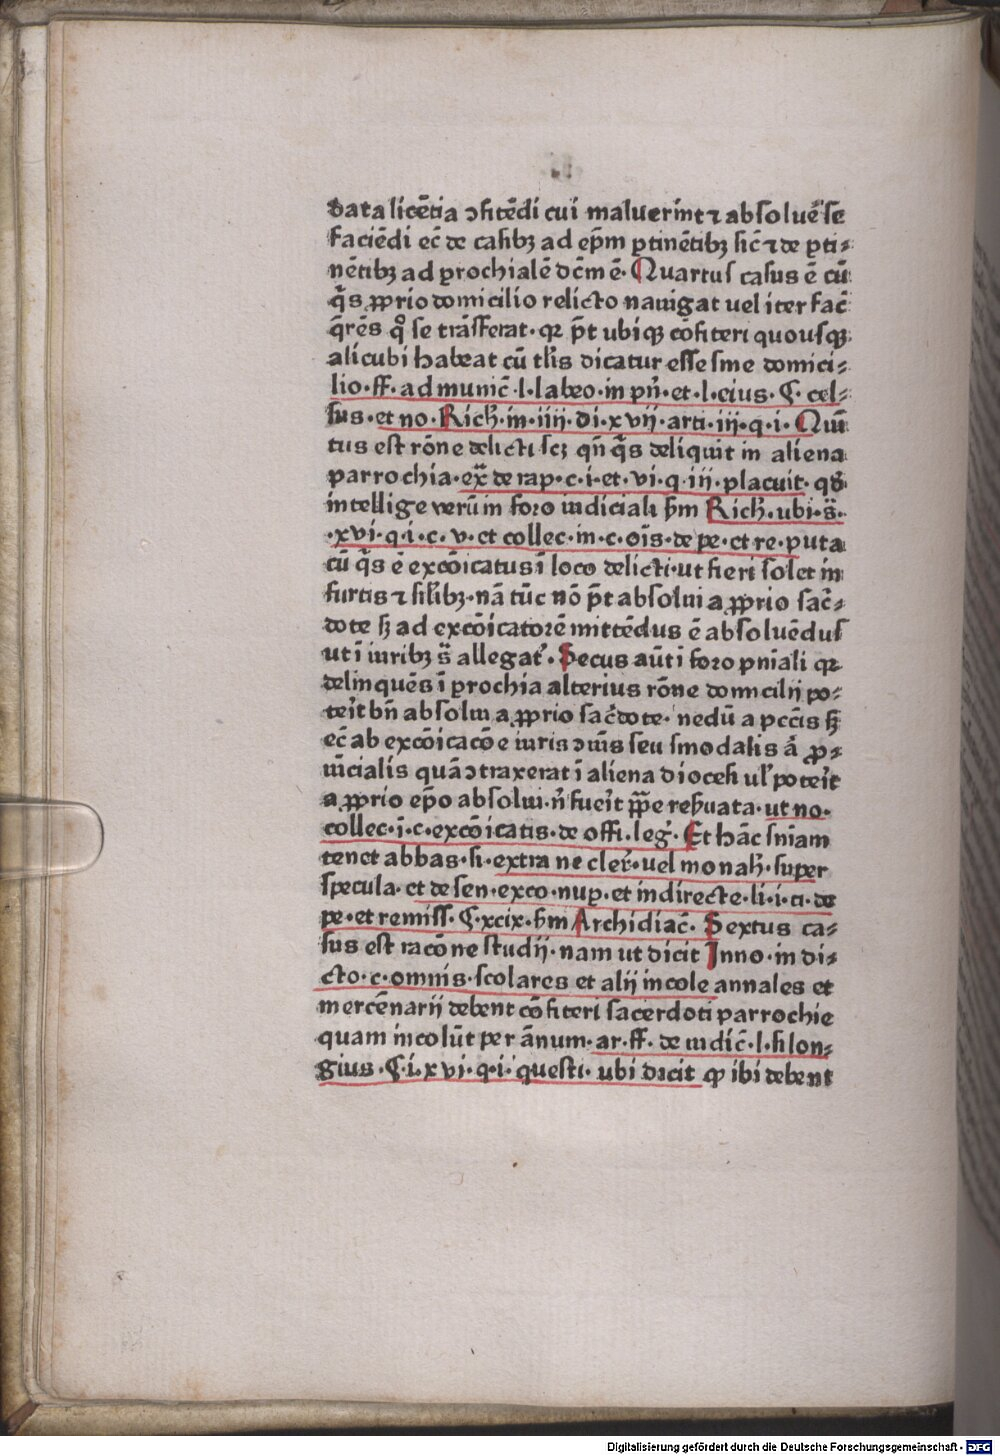 data licētia ɔfitēdi cui maluerint ⁊ absoluēse
faciēdi ec̄ de casibꝫ ad ep̄m ꝑtinētibꝫ sic̄ ⁊ de ꝑti⸗
nētibꝫ ad ꝑrochialē dc̄m ē· Quartus casus ē cū
q̄s ꝓprio domicilio relicto nauigat uel iter fac̄
q̄rēs qͦ se trāsferat· qꝛ pt̄ ubiqꝫ cōfiteri quousqꝫ
alicubi habeat cū tl̄is dicatur esse sine domici⸗
lio· ff· ad munic̄·l·labeo·in pn̄·et·l·eius·§·cel⸗
sus·et no·Rich̄·in·iiij·di·xvij·arti·iij·q·i·Quī
tus est rōne delicti scꝫ qn̄ q̄s deliquit in aliena
parrochia·ex̄ de rap·c·i·et·vi·q·iij·placuit· qd̄
intellige verū in foro iudiciali ẜm Rich̄·ubi·s̄·
·xvi·q·i·c·v·et collec·in·c·oīs·de pe·et re·puta
cū q̄s ē excōicatus ī loco delicti·ut fieri solet in
furtis ⁊ sil̄ibꝫ·nā tūc nō pt̄ absolui a ꝓprio sac̄⸗
dote sꝫ ad excōicatorē mittēdus ē absoluēdus
ut ī iuribꝫ s̄ allegat᷑· Secus aūt ī foro pn̄iali qꝛ
delinquēs ī ꝑrochia alterius rōne domicilij po⸗
teīt bn̄ absolui a ꝓprio sac̄dote· nedū a pcc̄is sꝫ
ec̄ ab excōicacōe iuris ɔm̄s seu sinodalis ā ꝓ⸗
uīcialis quā ɔtraxerat ī aliena diocesi ul̓ poteīt
a ꝓprio ep̄o absolui·n̄ fueīt ꝓpe reẜuata·ut no·
collec·ī·c·excōicatis·de offi·leg̓· Et hāc sn̄iam
tenet abbas·si·extra ne cler̓·uel monah̄·super
specula·et de sen·exco·nuꝑ·et indirecte·li·i·ti·de
pe·et remiss·§·xcix·ẜm Archidiac̄· Sextus ca⸗
sus est racōne studij·nam ut dicit Inno·in di⸗
cto·c·omnis·scolares et alij incole annales et
mercēnarij debent cōfiteri sacerdoti parrochie
quam incolūt per ānum·ar·ff·de iudic̄·l·si lon⸗
gius·§·i·xvi·q·i·questi·ubi dicit ꝙ ibi debent
Digitalisierung gefördert durch die Deutsche Forschungsgemeinschaft - DFG